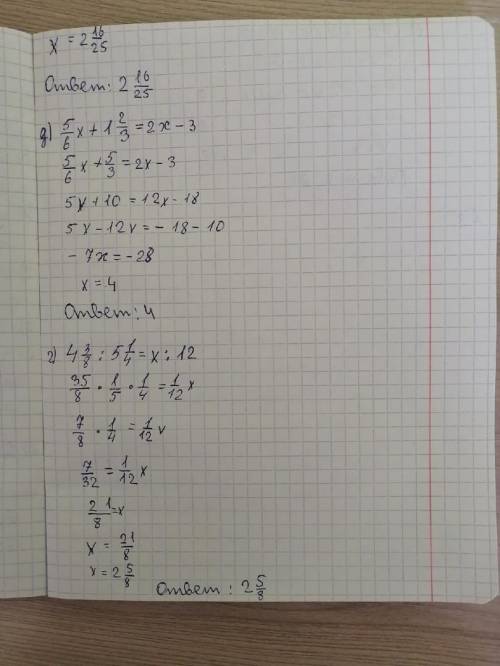 x = 2 16/25
Ответ: 2 16/25
д) 5/6 x + 1 2/3 = 2x - 3
5/6 x + 5/3 = 2x - 3
5x + 10 = 12x - 18
5x - 12x = - 18 - 10
- 7x = -28
x = 4
Ответ: 4
г) 4 3/8 : 5 1/4 = x : 12
35/8 · 1/5 · 1/4 = 1/12 x
7/8 · 1/4 = 1/12 x
7/32 = 1/12 x
21/8 = x
x = 21/8
x = 2 5/8
Ответ: 2 5/8